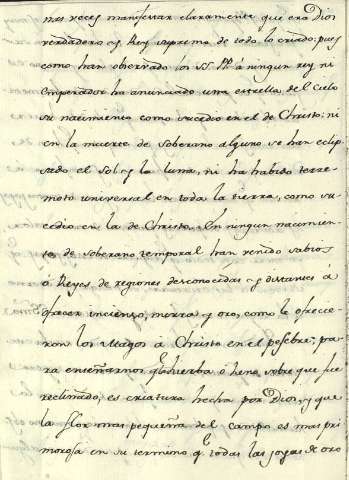 mas veces manifestar claramente que era Dios
verdadero y Rey supremo de todo lo criado; pues
como han observado los SS. PP. á ningun rey ni
Emperador ha anunciado una estrella del Cielo
su nacimiento como sucedio en el de Christo; ni
en la muerte de soberano alguno se han eclip
sado el Sol y la luna, ni ha habido terre
moto universal en toda la tierra, como su
cedio en la de Christo. En ningun nacimien
to de soberano temporal han venido sabios
ó Reyes de regiones desconocidas y distantes á
ofrecer incienzo, mirra y oro, como le ofrecie
ron los Magos á Christo en el pesebre; pa
ra enseñarnos q. la hierba ó heno, sobre que fue
reclinado, es criatura hecha por Dios, y que
la flor mas pequeña del campo es mas pri
morosa en su termino q. todas las joyas de oro